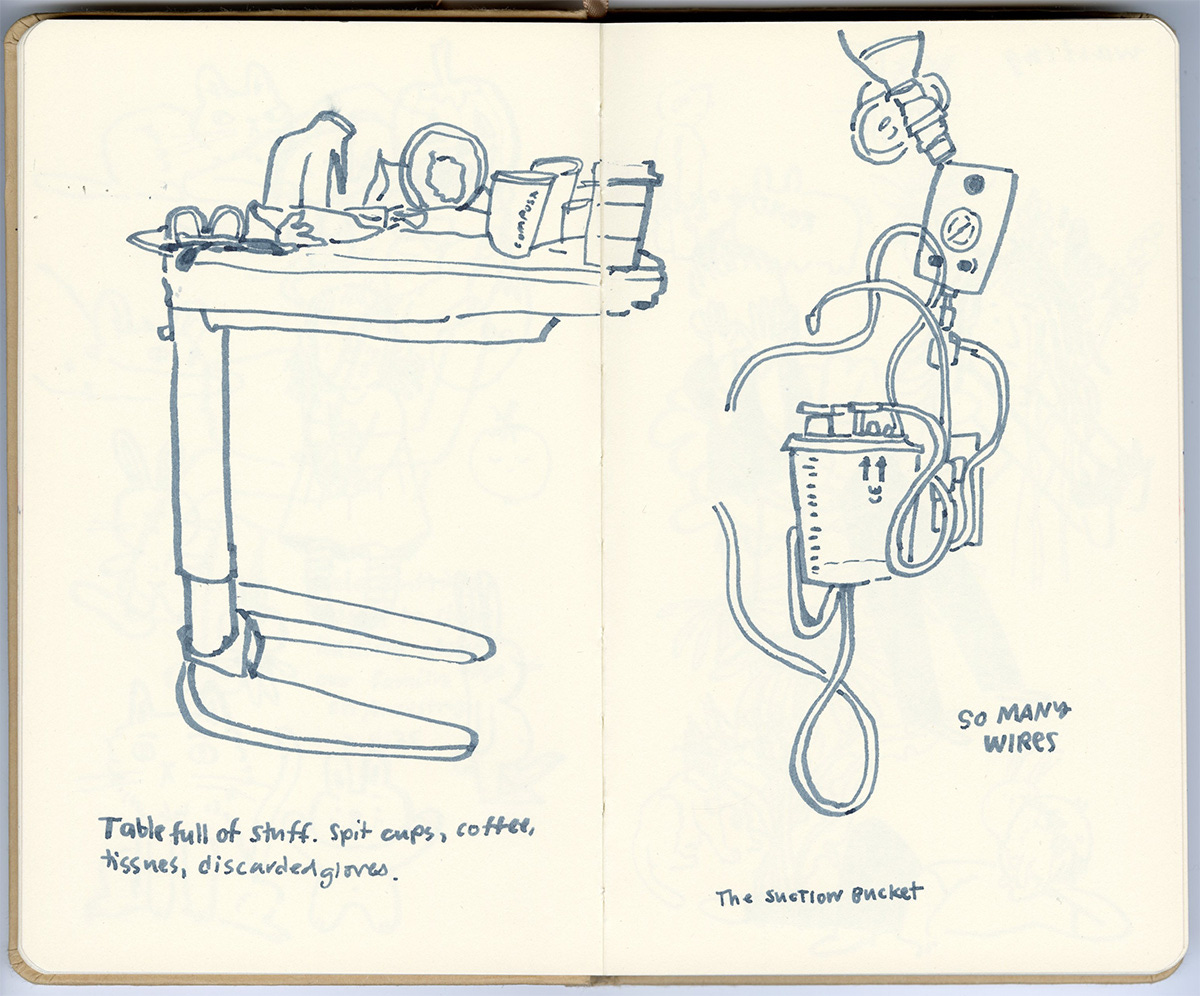 COMPUSA
Table full of stuff. Spit cups, coffee,
tissues, discarded gloves.
CE
SO MANY
WIRES
The Suction Bucket